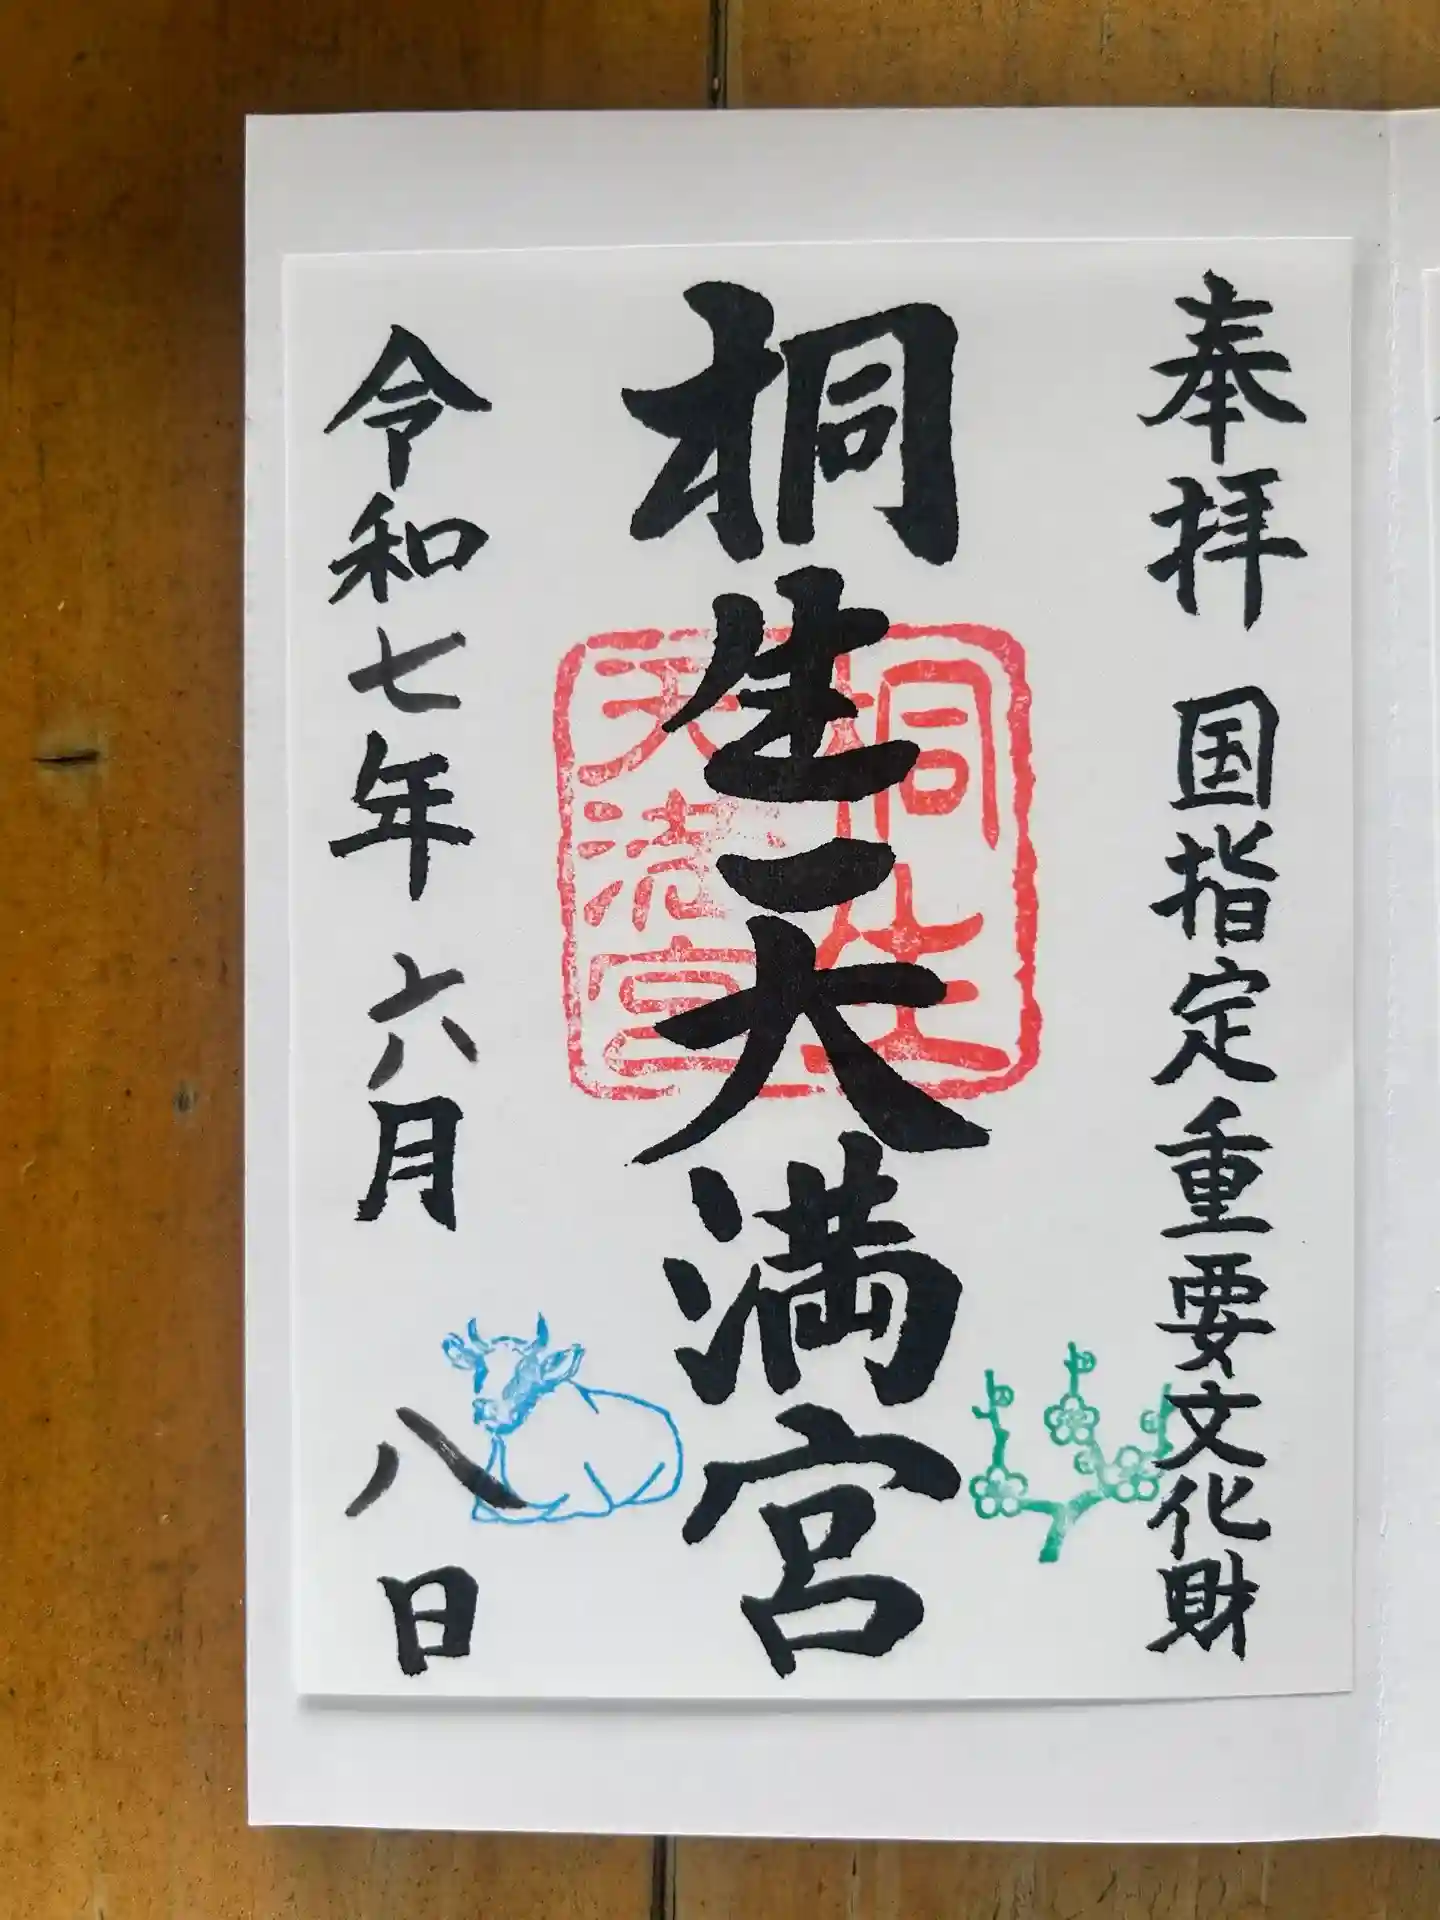 奉拝 国指定重要文化財
桐生天満宮
桐生
天満宮
令和七年 六月 八日